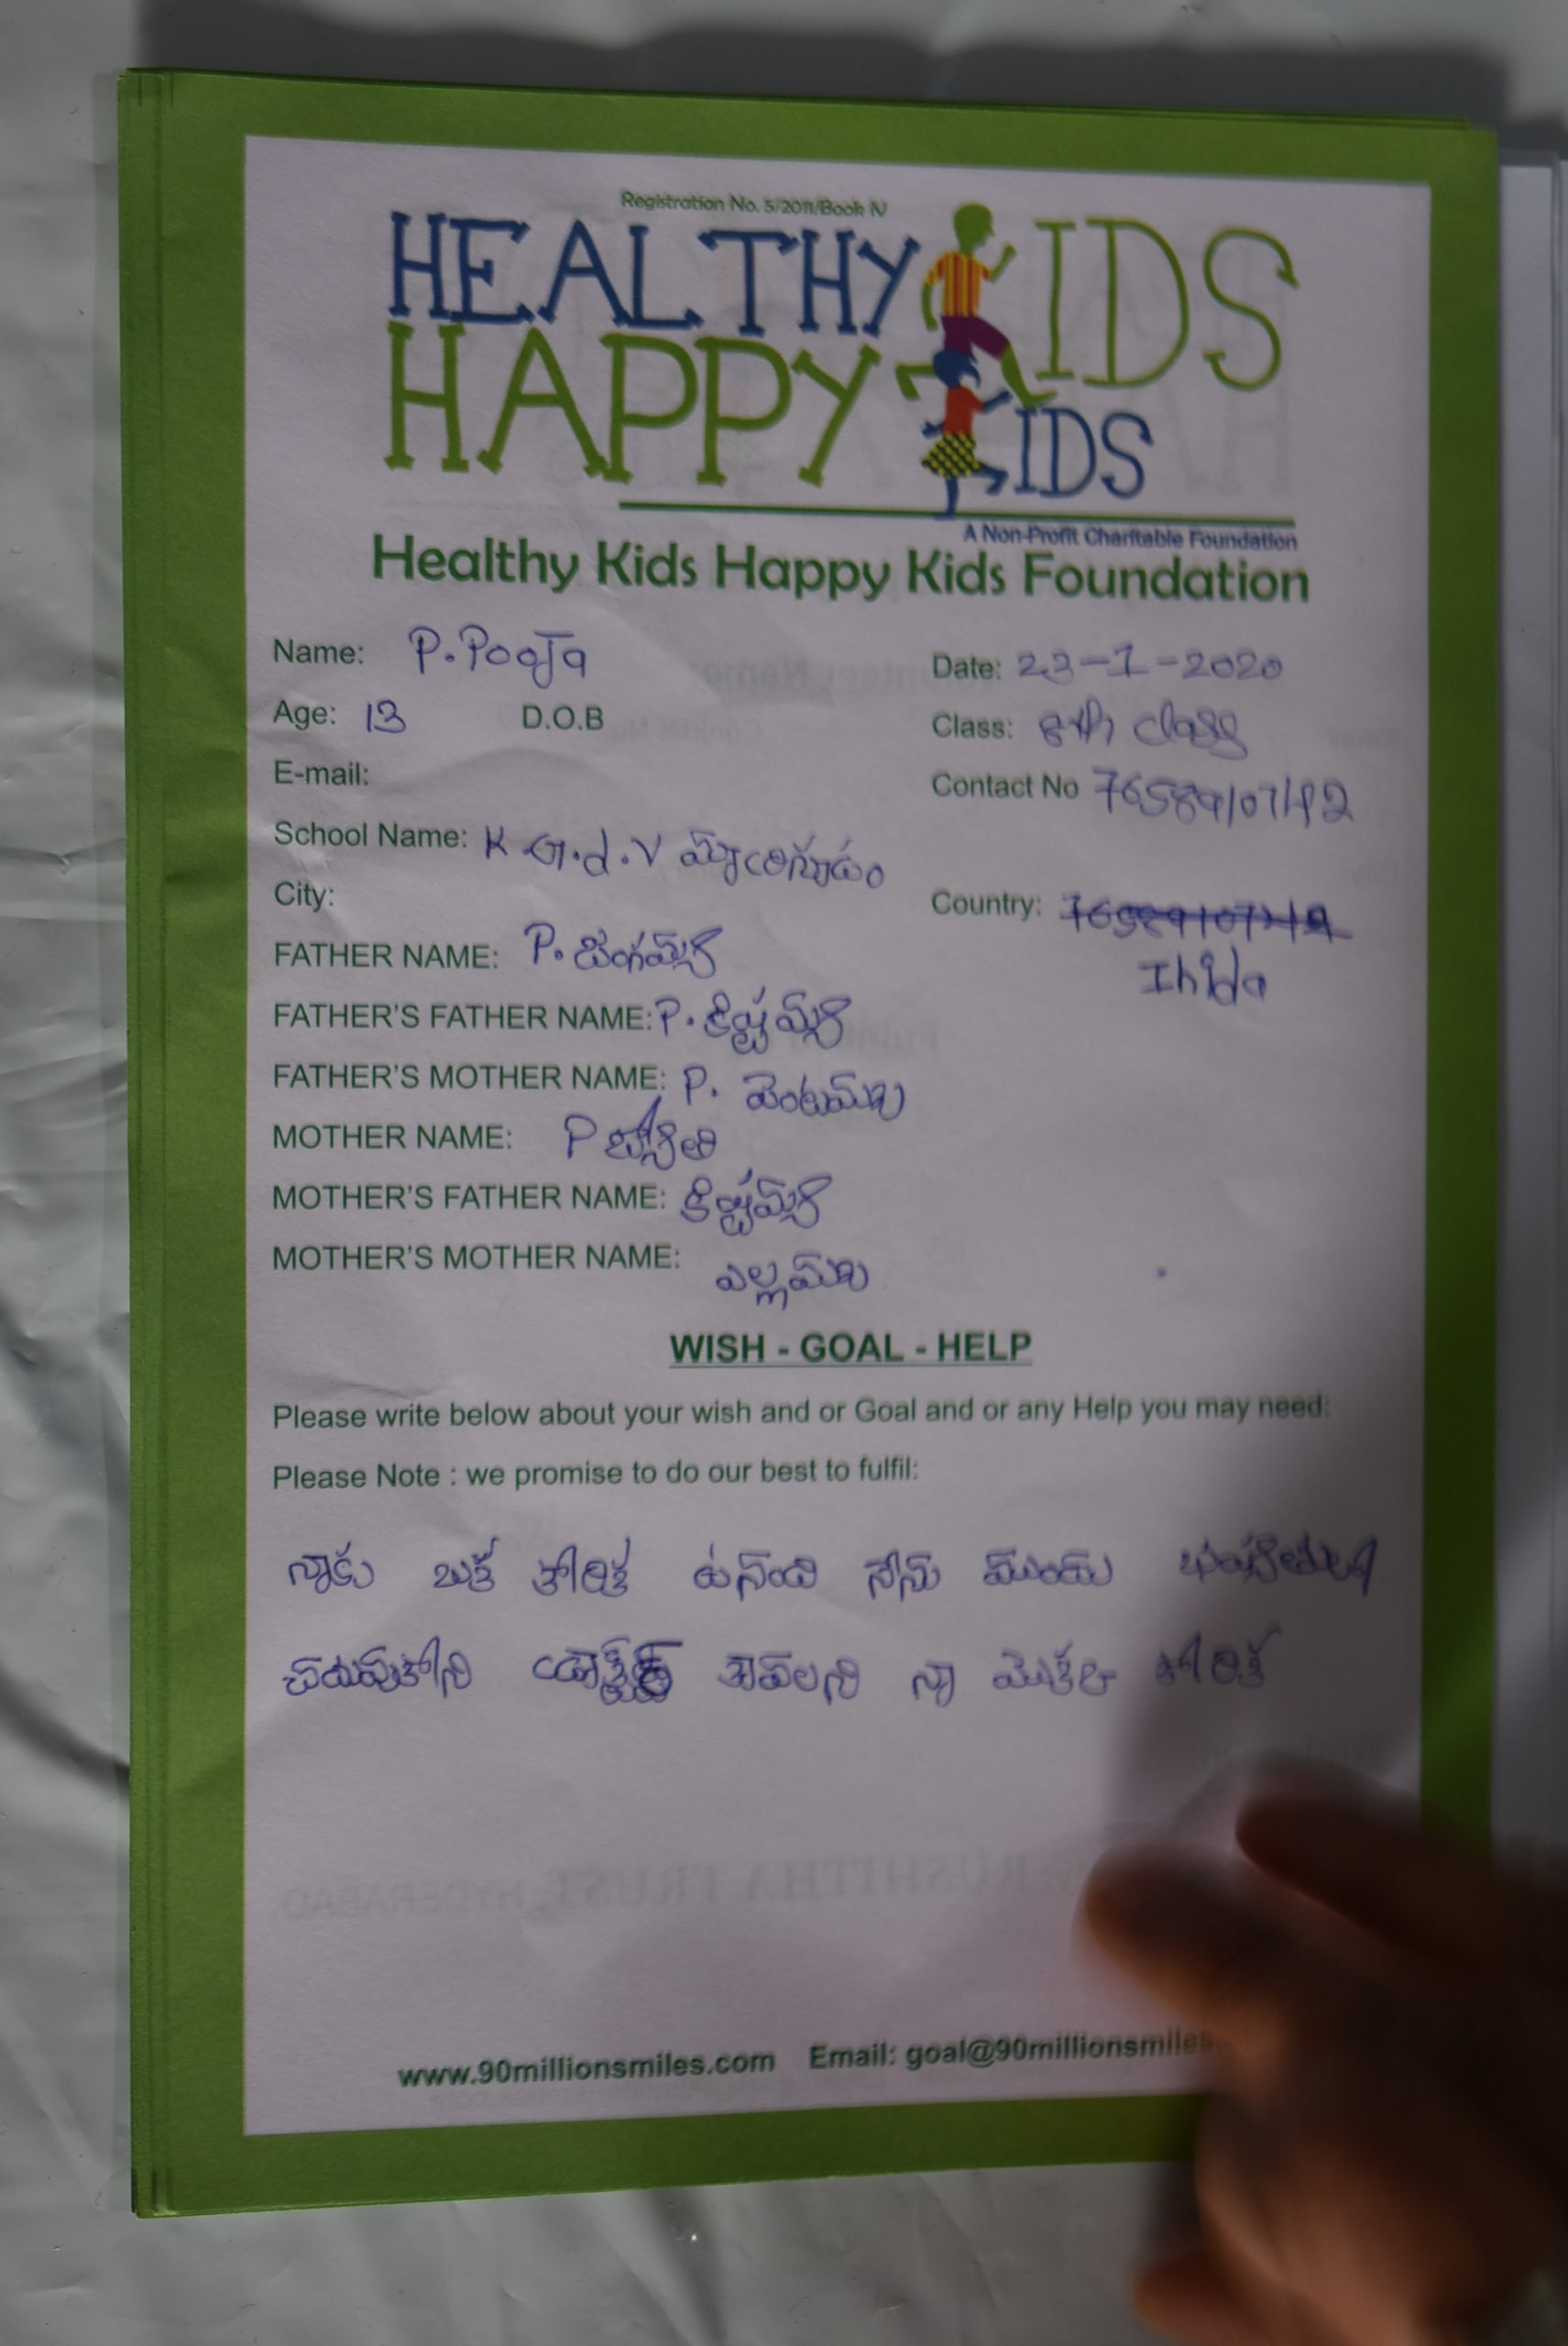 Registration No. 5/2011/Book IV
HEALTHY KIDS
HAPPY KIDS
A Non-Profit Charitable Foundation
Healthy Kids Happy Kids Foundation
Name: P. Pooja Date: 23-1-2020
Age: 13 D.O.B Class: 8th class
E-mail: Contact No
School Name: K.G.d.V
City: Country: Inida
FATHER NAME: P. జంగమ్మ
FATHER'S FATHER NAME: P. కిష్టమ్మ
FATHER'S MOTHER NAME: P. వెంటమ్మ
MOTHER NAME: P
MOTHER'S FATHER NAME: కిష్టమ్మ
MOTHER'S MOTHER NAME: ఎల్లమ్మ
WISH - GOAL - HELP
Please write below about your wish and or Goal and or any Help you may need:
Please Note : we promise to do our best to fulfil:
నాకు ఒక కోరిక ఉనంది నేను ముందు
చదువుకోని కావలని నా మొకటి కోరిక
www.90millionsmiles.com Email: goal@90millionsmiles